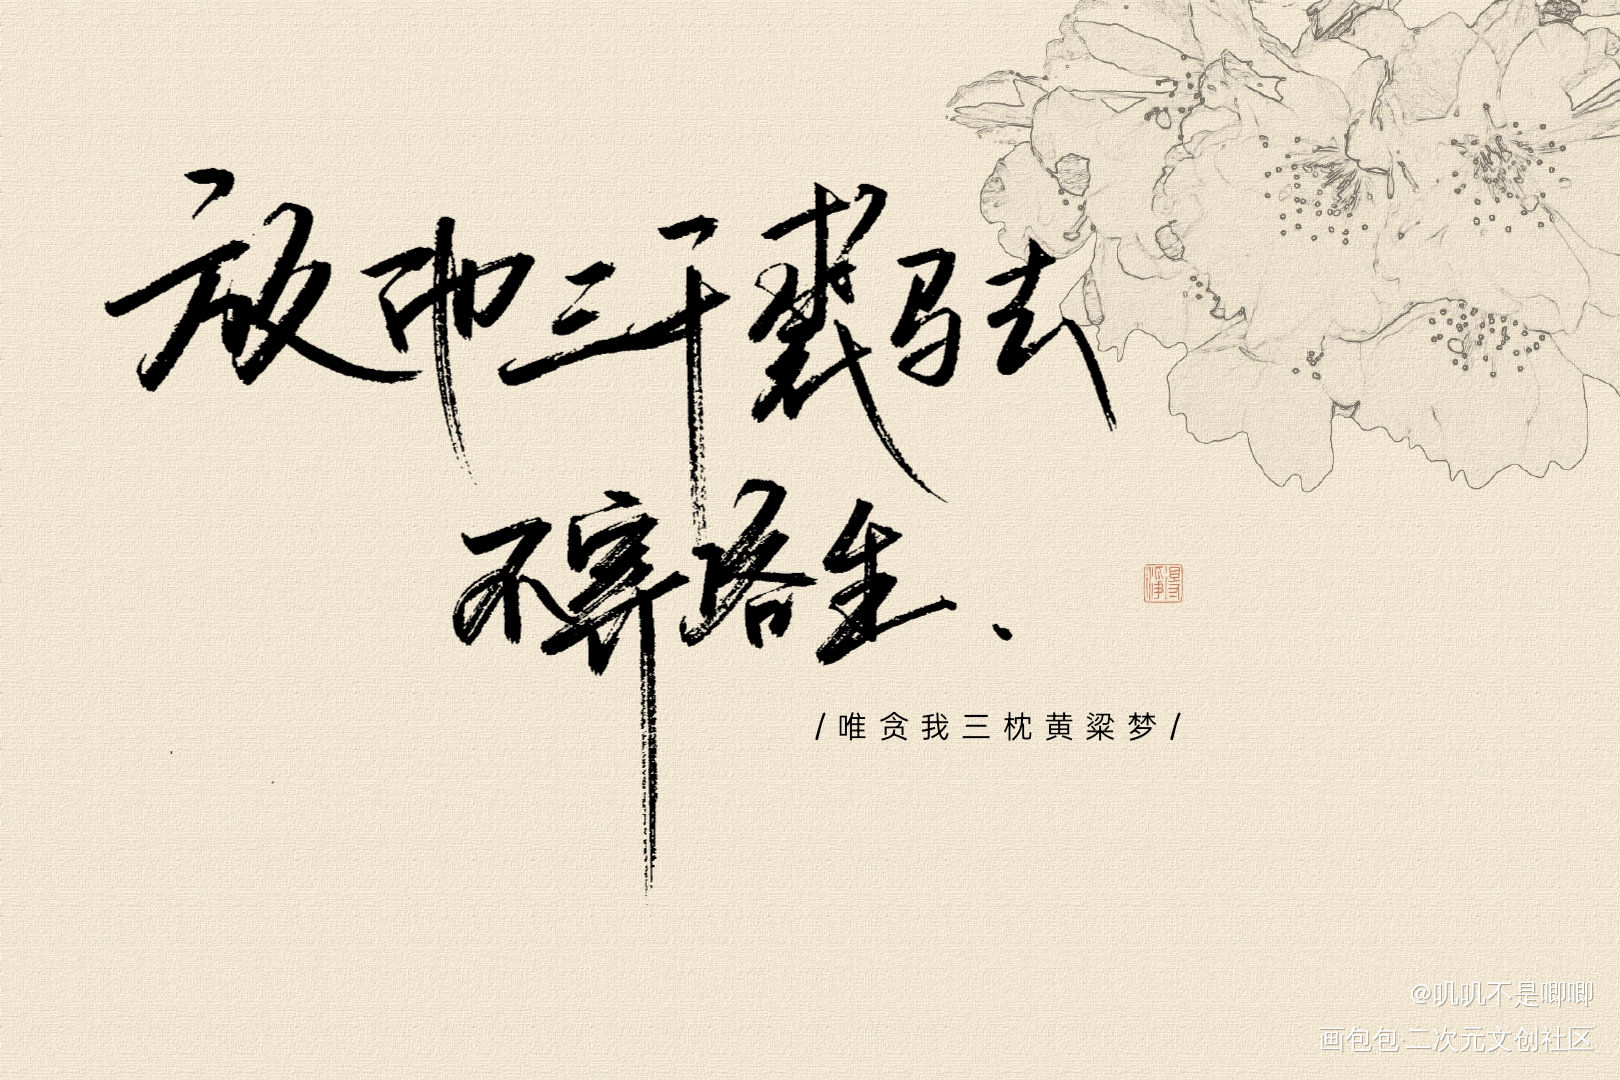 放而三千裘马去
不寄路生、
/唯贪我三枕黄粱梦/
@叽叽不是唧唧
画包包·二次元文创社区